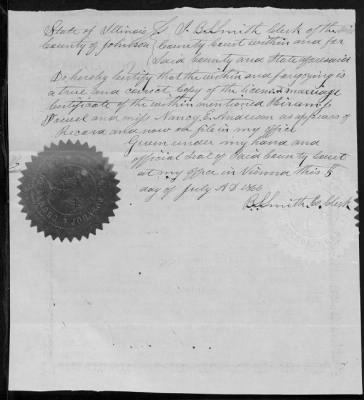 State of Illinois } I, B. S. Smith Clerk of the
County of Johnson } County Court within and for
Said County and State aforesaid
Do hereby Certify that the within and forgoing is
a true and correct Copy of the license & marriage
Certificate of the within mentioned Hiram
and miss Nancy E Anderson as appears of
Record and now on file in my office
Given under my hand and
official Seal of Said County Court
at my office in Vienna this
day of July AD 186
B. S. Smith Co. Clerk